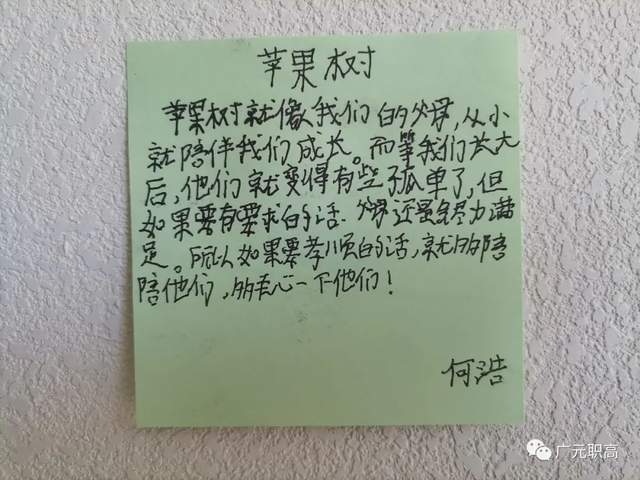 苹果树
苹果树就像我们的父母,从小
就陪伴我们成长。而等我们长大
后,他们就变得有些孤单了,但
如果要有要求的话、父母还是会尽力满
足。所以如果要孝顺的话,就多陪
陪他们,多关心一下他们!
何浩
广元职高